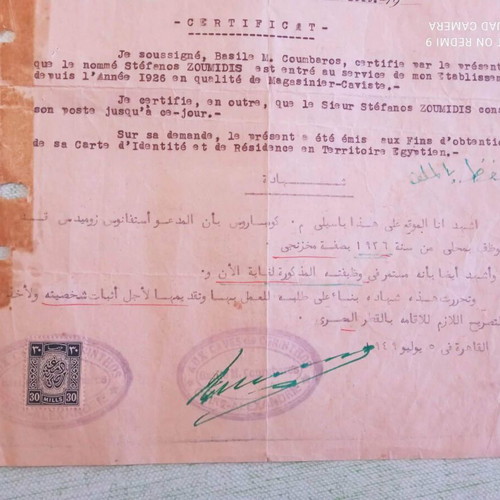 - CERTIFICAT -
Je soussigné, Basile M. Coumbaros, certifie par le présent
que le nommé Stéfanos ZOUMIDIS est entré au service de mon Etablisse
depuis l'Année 1926 en qualité de Magasinier-Caviste.
Je certifie, en outre, que le Sieur Stéfanos ZOUMIDIS con
son poste jusqu'à ce-jour.
Sur sa demande, le présent a été émis aux Fins d'obtenti
de sa Carte d'Identité et de Résidence en Territoire Egyptien.
شهادة
اشهد انا الموقع على هذا باسيلى م. كومباروس بأن المدعو أستفانوس زوميدس قد
بمحلى من سنة ١٩٢٦ بصفة مخزنجى
وأشهد أيضا بأنه مستمر فى وظيفته المذكورة لغاية الآن و
وتحررت هذه شهادة بناء على طلبه للعمل بها وتقديمها لأجل أثبات شخصيته ولأخذ
التصريح اللازم للاقامه بالقطر المصرى
القاهرة فى ٥ يوليو
٣٠ ٣٠
30 MILLS 30
SHOT ON REDMI 9
QUAD CAMERA